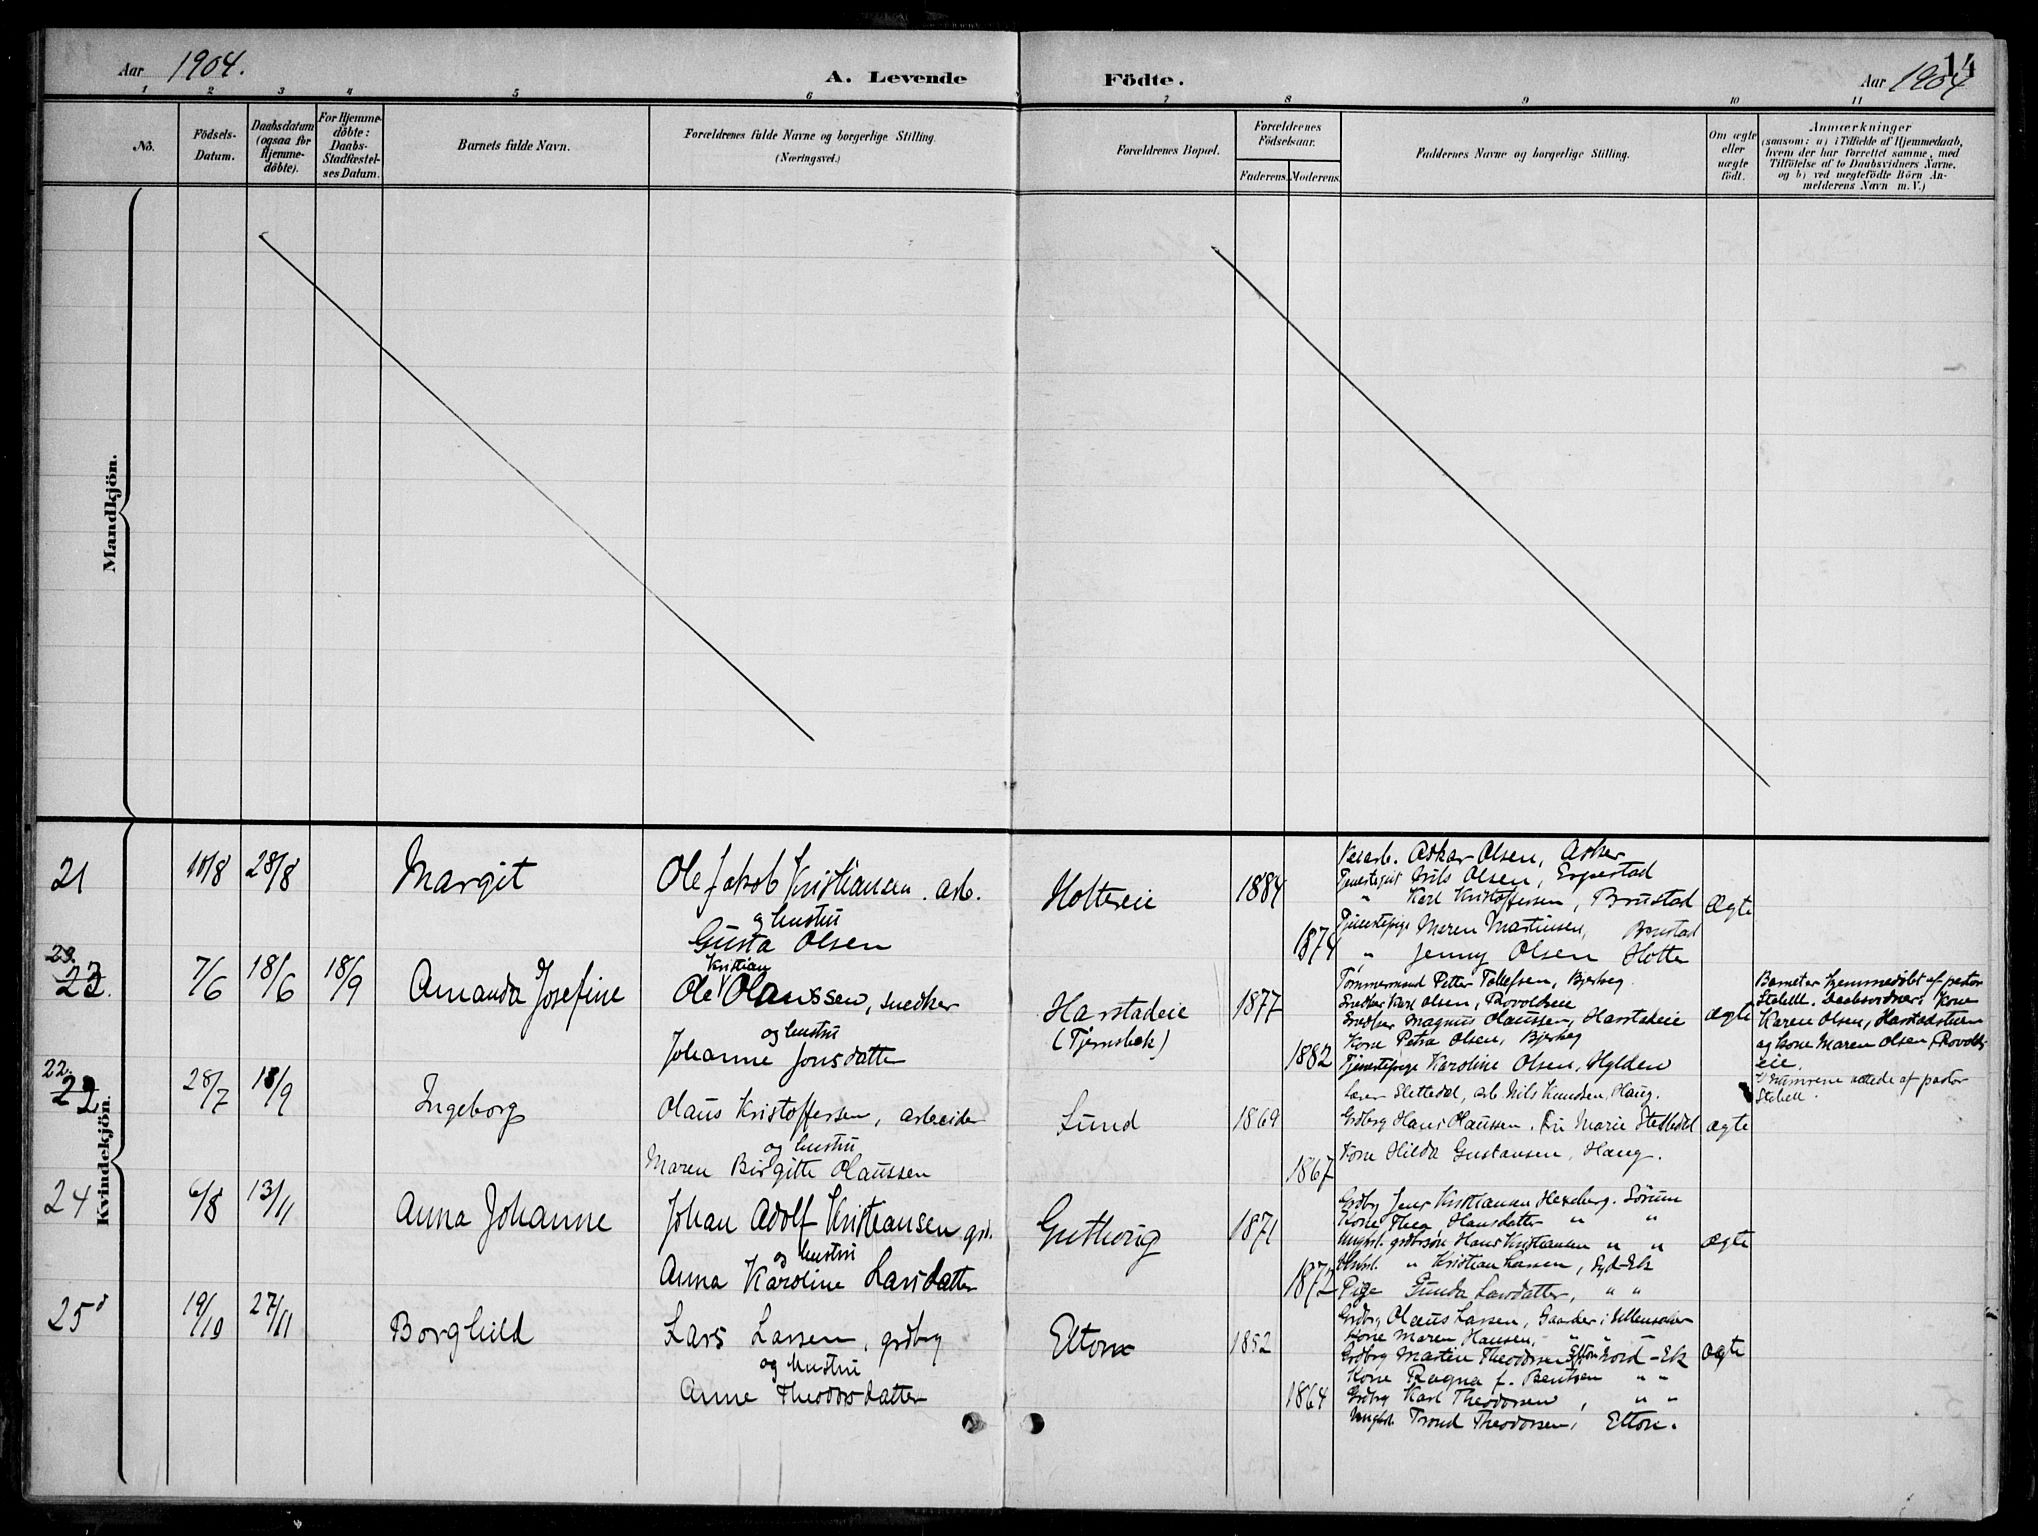 Aar 1904.
A. Levende Födte.
Aar 1904
14
1 2 3 4 5 6 7 8 9 10 11
No.
Födsels-
Datum.
Daabsdatum
(ogsaa for
Hjemme-
döbte).
For Hjemme-
döbte:
Daabs-
Stadfæstel-
ses Datum.
Barnets fulde Navn.
Forældrenes fulde Navne og borgerlige Stilling.
(Næringsvei.)
Forældrenes Bopæl.
Forældrenes
Födselsaar.
Faderens. Moderens.
Faddernes Navne og borgerlige Stilling.
Om ægte
eller
uægte
født.
Anmærkninger
(saasom: a) i Tilfælde af Hjemmedaab,
hvem der har forrettet samme, med
Tilföielse af to Daabsvidners Navne.
og b) ved uægtefödte Börn An-
melderens Navn m. V.)
Mandkjön.
Kvindekjön.
21 10/8 28/8 Margit
Ole Jakob Kristiansen. arb.
og hustru
Gusta Olsen
Holtereie 1884
1874
Oskar Olsen, Asker
Nils Olsen, Espestad
" Karl Kristoffersen, Brustad
Tjenestepige Maren Martinsen, Brustad
" Jenny Olsen Holter
Ægte
23.
7/6 18/6 18/9 Amanda Josefine
Kristian
Ole Olaussen, snedker
og hustru
Johanne Jonsdatter
Harstadeie 1877
1882
Petter Tollefsen, Bjerkeg
Snedker Karl Olsen, Rovoldseie
Snedker Magnus Olaussen, Harstadeie
Kone Petra Olsen, Bjerkeg
Tjenestepige Karoline Olsen, Hylden
Ægte
Barnet er hjemmedöbt af pastor
Stabell. Daabsvidner: Kone
Karen Olsen, Harstadstuen
og kone Maren Olsen, Rovolds-
eie.
Numrene rettede af pastor
Stabell.
22.
28/7 18/9 Ingeborg
Olaus Kristoffersen, arbeider
og hustru
Maren Birgitte Olaussen
Lund 1869
1867
Lærer Slettedal, arb. Nils Knudsen, Haug.
Grdbrg Hans Olaussen. Marie
Kone Hilda Gustavsen, Haug.
ægte
24 6/8 13/11 Anna Johanne
Johan Adolf Kristiansen grd.
og hustru
Anna Karoline Larsdatter
1871
1872
Grdbr Jens Kristiansen Hexeberg. Sörum
Kone Thea Hansdatter " "
Ungk. grdbrsön Hans Kristiansen " "
" Kristian Larsen, Syd-Ek
Pige Gunda Larsdatter, " "
Ægte
25 19/10 27/11 Borghild
Lars Larsen, grdbrg
og hustru
Anne Theodorsdatter
Elton 1852
1864
Grdbrg Olaus Larsen, Gaarder i Ullensaker
Kone Maren Hansen, " "
Grdbrg Martin Theodorsen Nord-Ek
Kone Ragna f. Berntsen " "
Grdbrg Karl Theodorsen, " "
Ungk. Trond Theodorsen, Elton.
Ægte